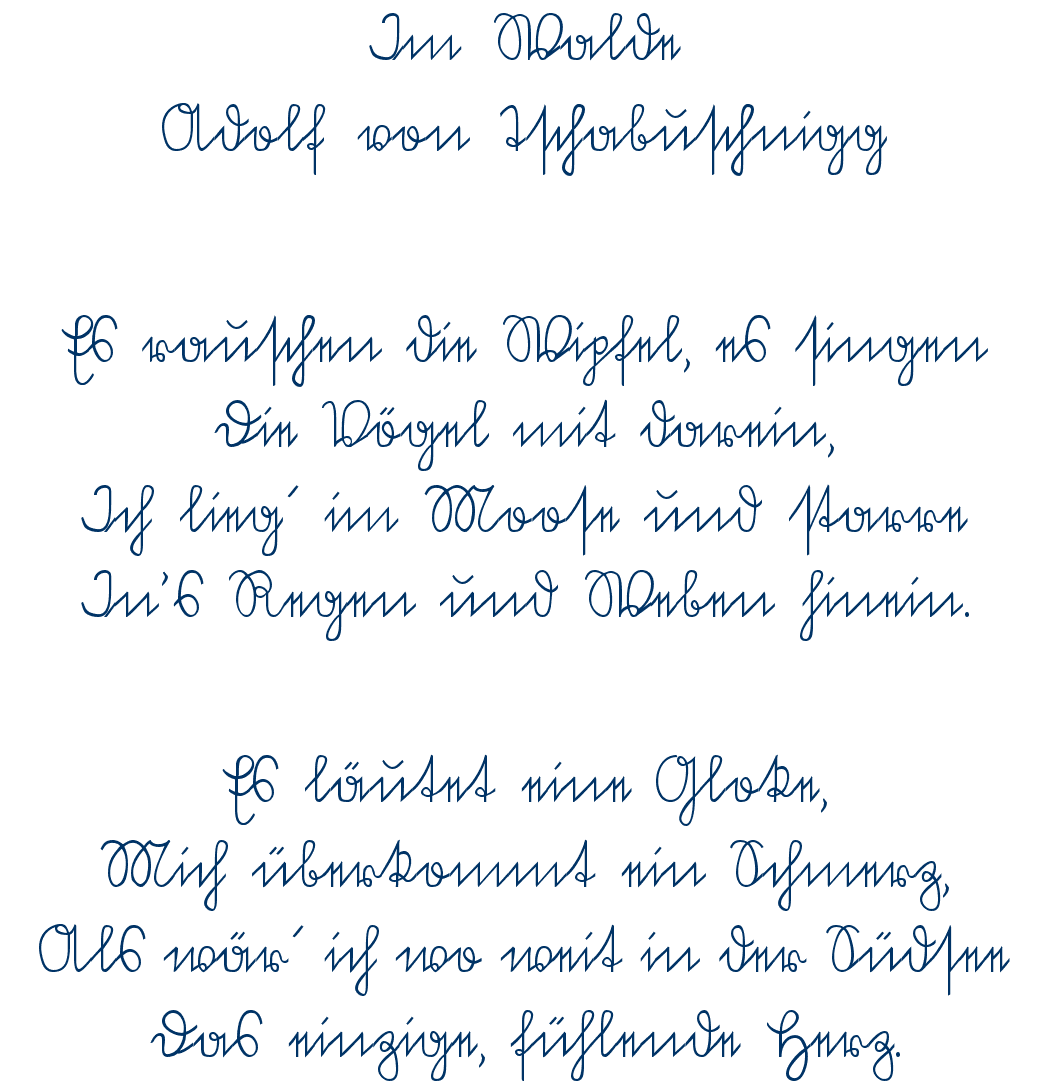 Im Walde
Adolf von Tschabuschnigg
Es rauschen die Wipfel, es singen
Die Vögel mit darein,
Ich lieg´ im Moose und starre
In’s Regen und Weben hinein.
Es läutet eine Gloke,
Mich überkommt ein Schmerz,
Als wär´ ich wo weit in der Südsee
Das einzige, fühlende Herz.